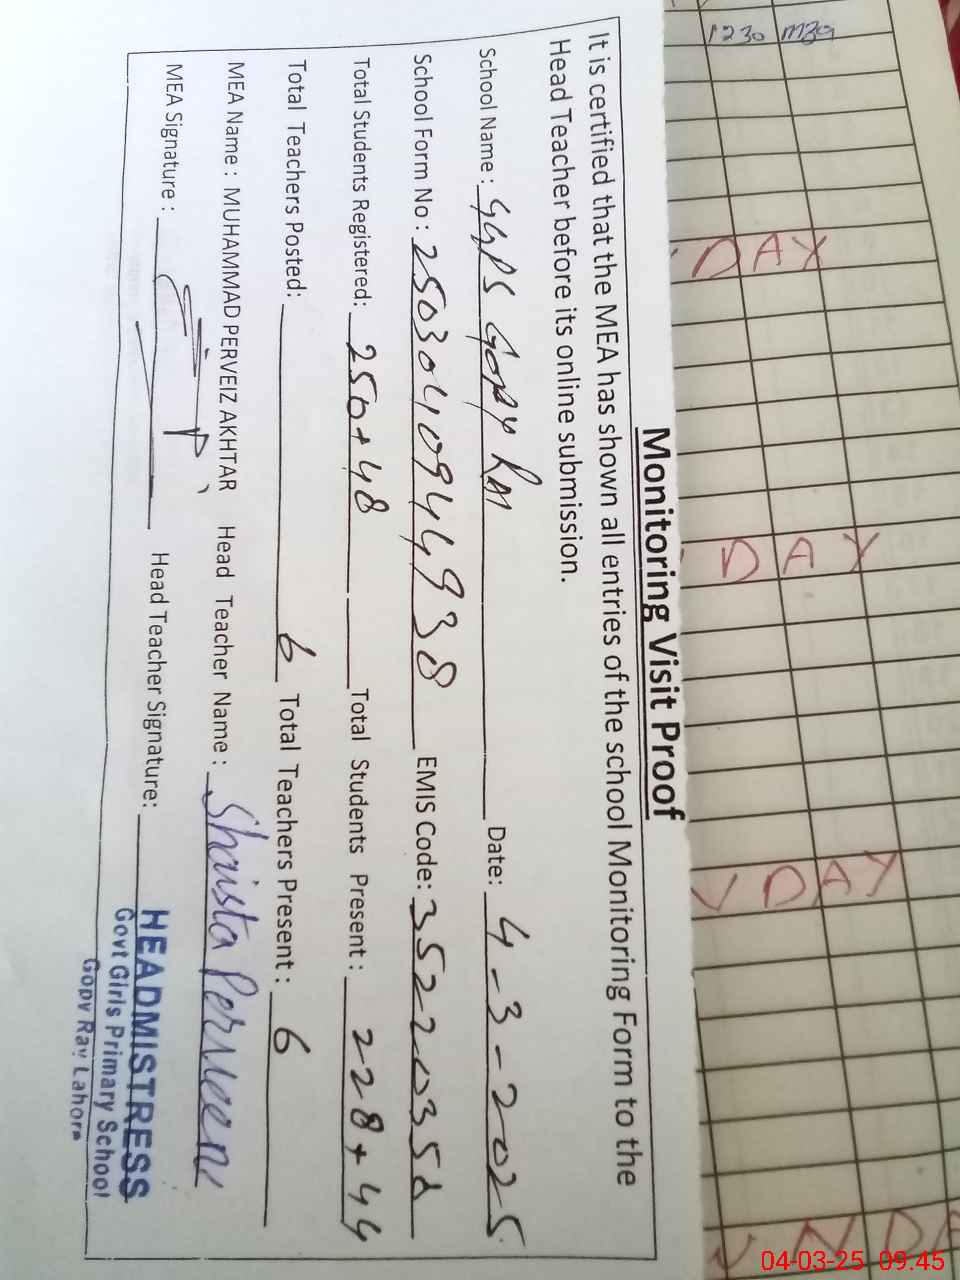 Monitoring Visit Proof
It is certified that the MEA has shown all entries of the school Monitoring Form to the
Head Teacher before its online submission.
School Name : GGPS Gopy Ray Date: 4-3-2025
School Form No : 25030410944938 EMIS Code: 35220358
Total Students Registered: 250+48 Total Students Present : 228+44
Total Teachers Posted: 6 Total Teachers Present : 6
MEA Name : MUHAMMAD PERVEIZ AKHTAR Head Teacher Name : Shaista Perveen
MEA Signature : Head Teacher Signature:
HEADMISTRESS
Govt Girls Primary School
Gopy Ray Lahore
1230
DAY
DAY
DAY
04-03-25 09.45